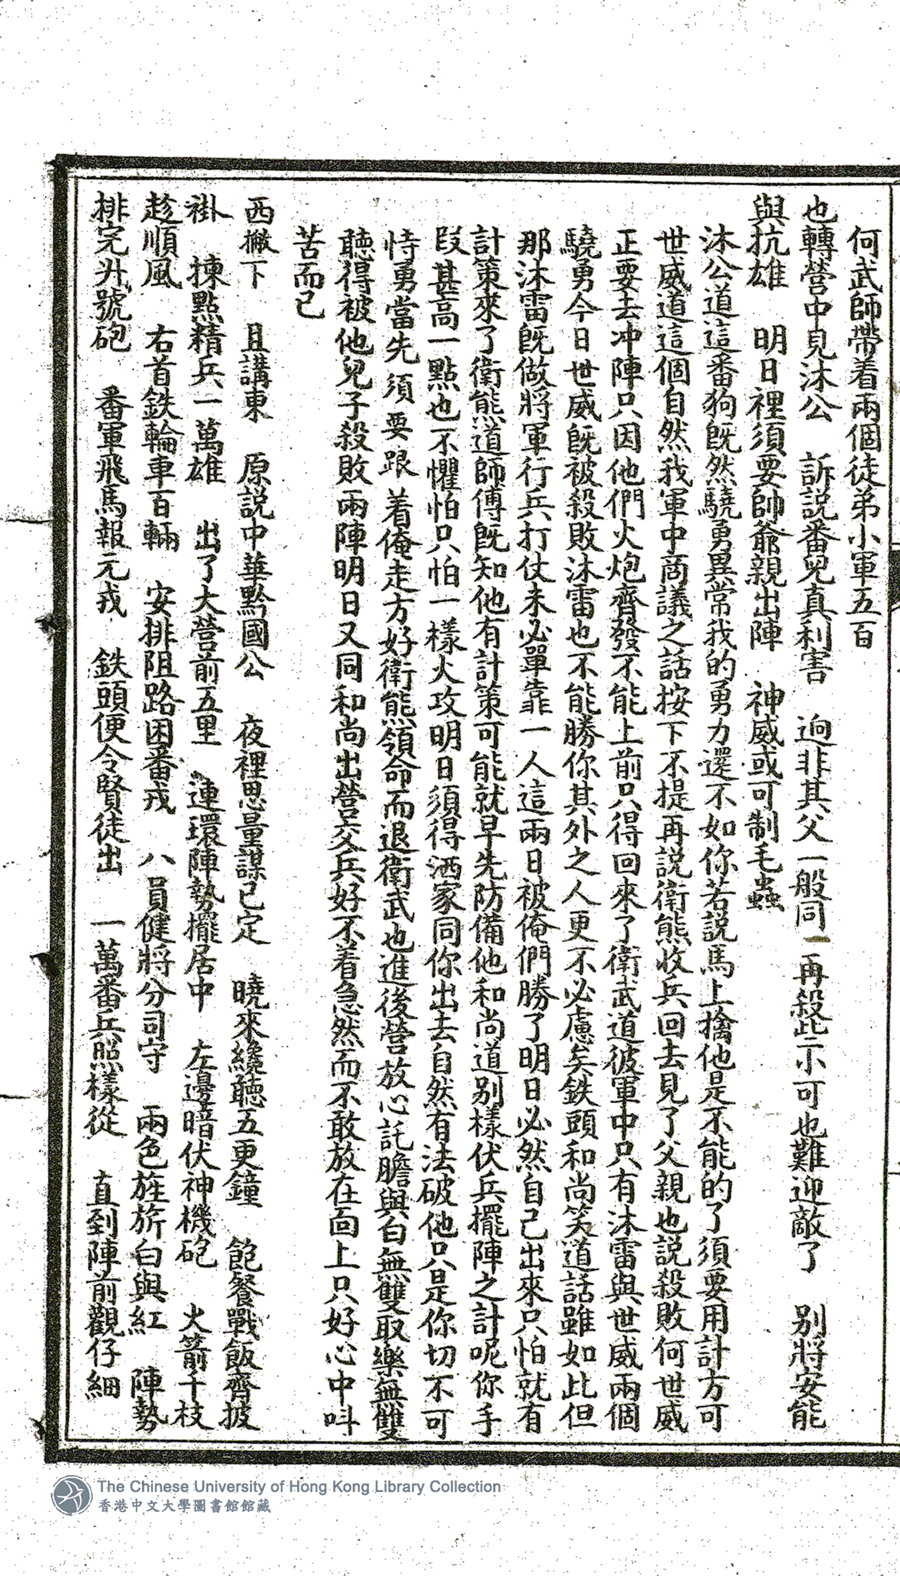 何武師帶着兩個徒弟小軍五百
也轉營中見沐公　訴説番兒真利害　逈非其父一般同　再殺些小可也難迎敵了　别將安能
與抗雄　明日裡須要帥爺親出陣　神威或可制毛蟲
沐公道這番狗既然驍勇異常我的勇力還不如你若説馬上擒他是不能的了須要用計方可
世威道這個自然我軍中商議之話按下不提再説衛熊收兵回去見了父親也説殺敗何世威
正要去冲陣只因他們火炮齊發不能上前只得回來了衛武道彼軍中只有沐雷與世威兩個
驍勇今日世威既被殺敗沐雷也不能勝你其外之人更不必慮矣鉄頭和尚笑道話雖如此但
那沐雷既做將軍行兵打仗未必單靠一人這兩日被俺們勝了明日必然自己出來只怕就有
計策來了衛熊道師傅既知他有計策可能就早先防備他和尚道别樣伏兵擺陣之計呢你手
段甚高一點也不懼怕只怕一樣火攻明日須得洒家同你出去自然有法破他只是你切不可
恃勇當先須要跟着俺走方好衛熊領命而退衛武也進後營放心託膽與白無雙取樂無雙
聽得被他兒子殺敗兩陣明日又同和尚出營交兵好不着急然而不敢放在面上只好心中叫
苦而已
西撇下　且講東　原説中華黔國公　夜裡思量謀已定　曉來纔聽五更鐘　飽餐戰飯齊披
褂　揀點精兵一萬雄　出了大營前五里　連環陣勢擺居中　左邊暗伏神機砲　火箭千枝
趁順風　右首鉄輪車百輛　安排阻路困番戎　八員健將分司守　兩色旌旂白與紅　陣勢
排完升號砲　番軍飛馬報元戎　鉄頭便令賢徒出　一萬番兵照樣從　直到陣前觀仔細
The Chinese University of Hong Kong Library Collection
香港中文大學圖書館館藏